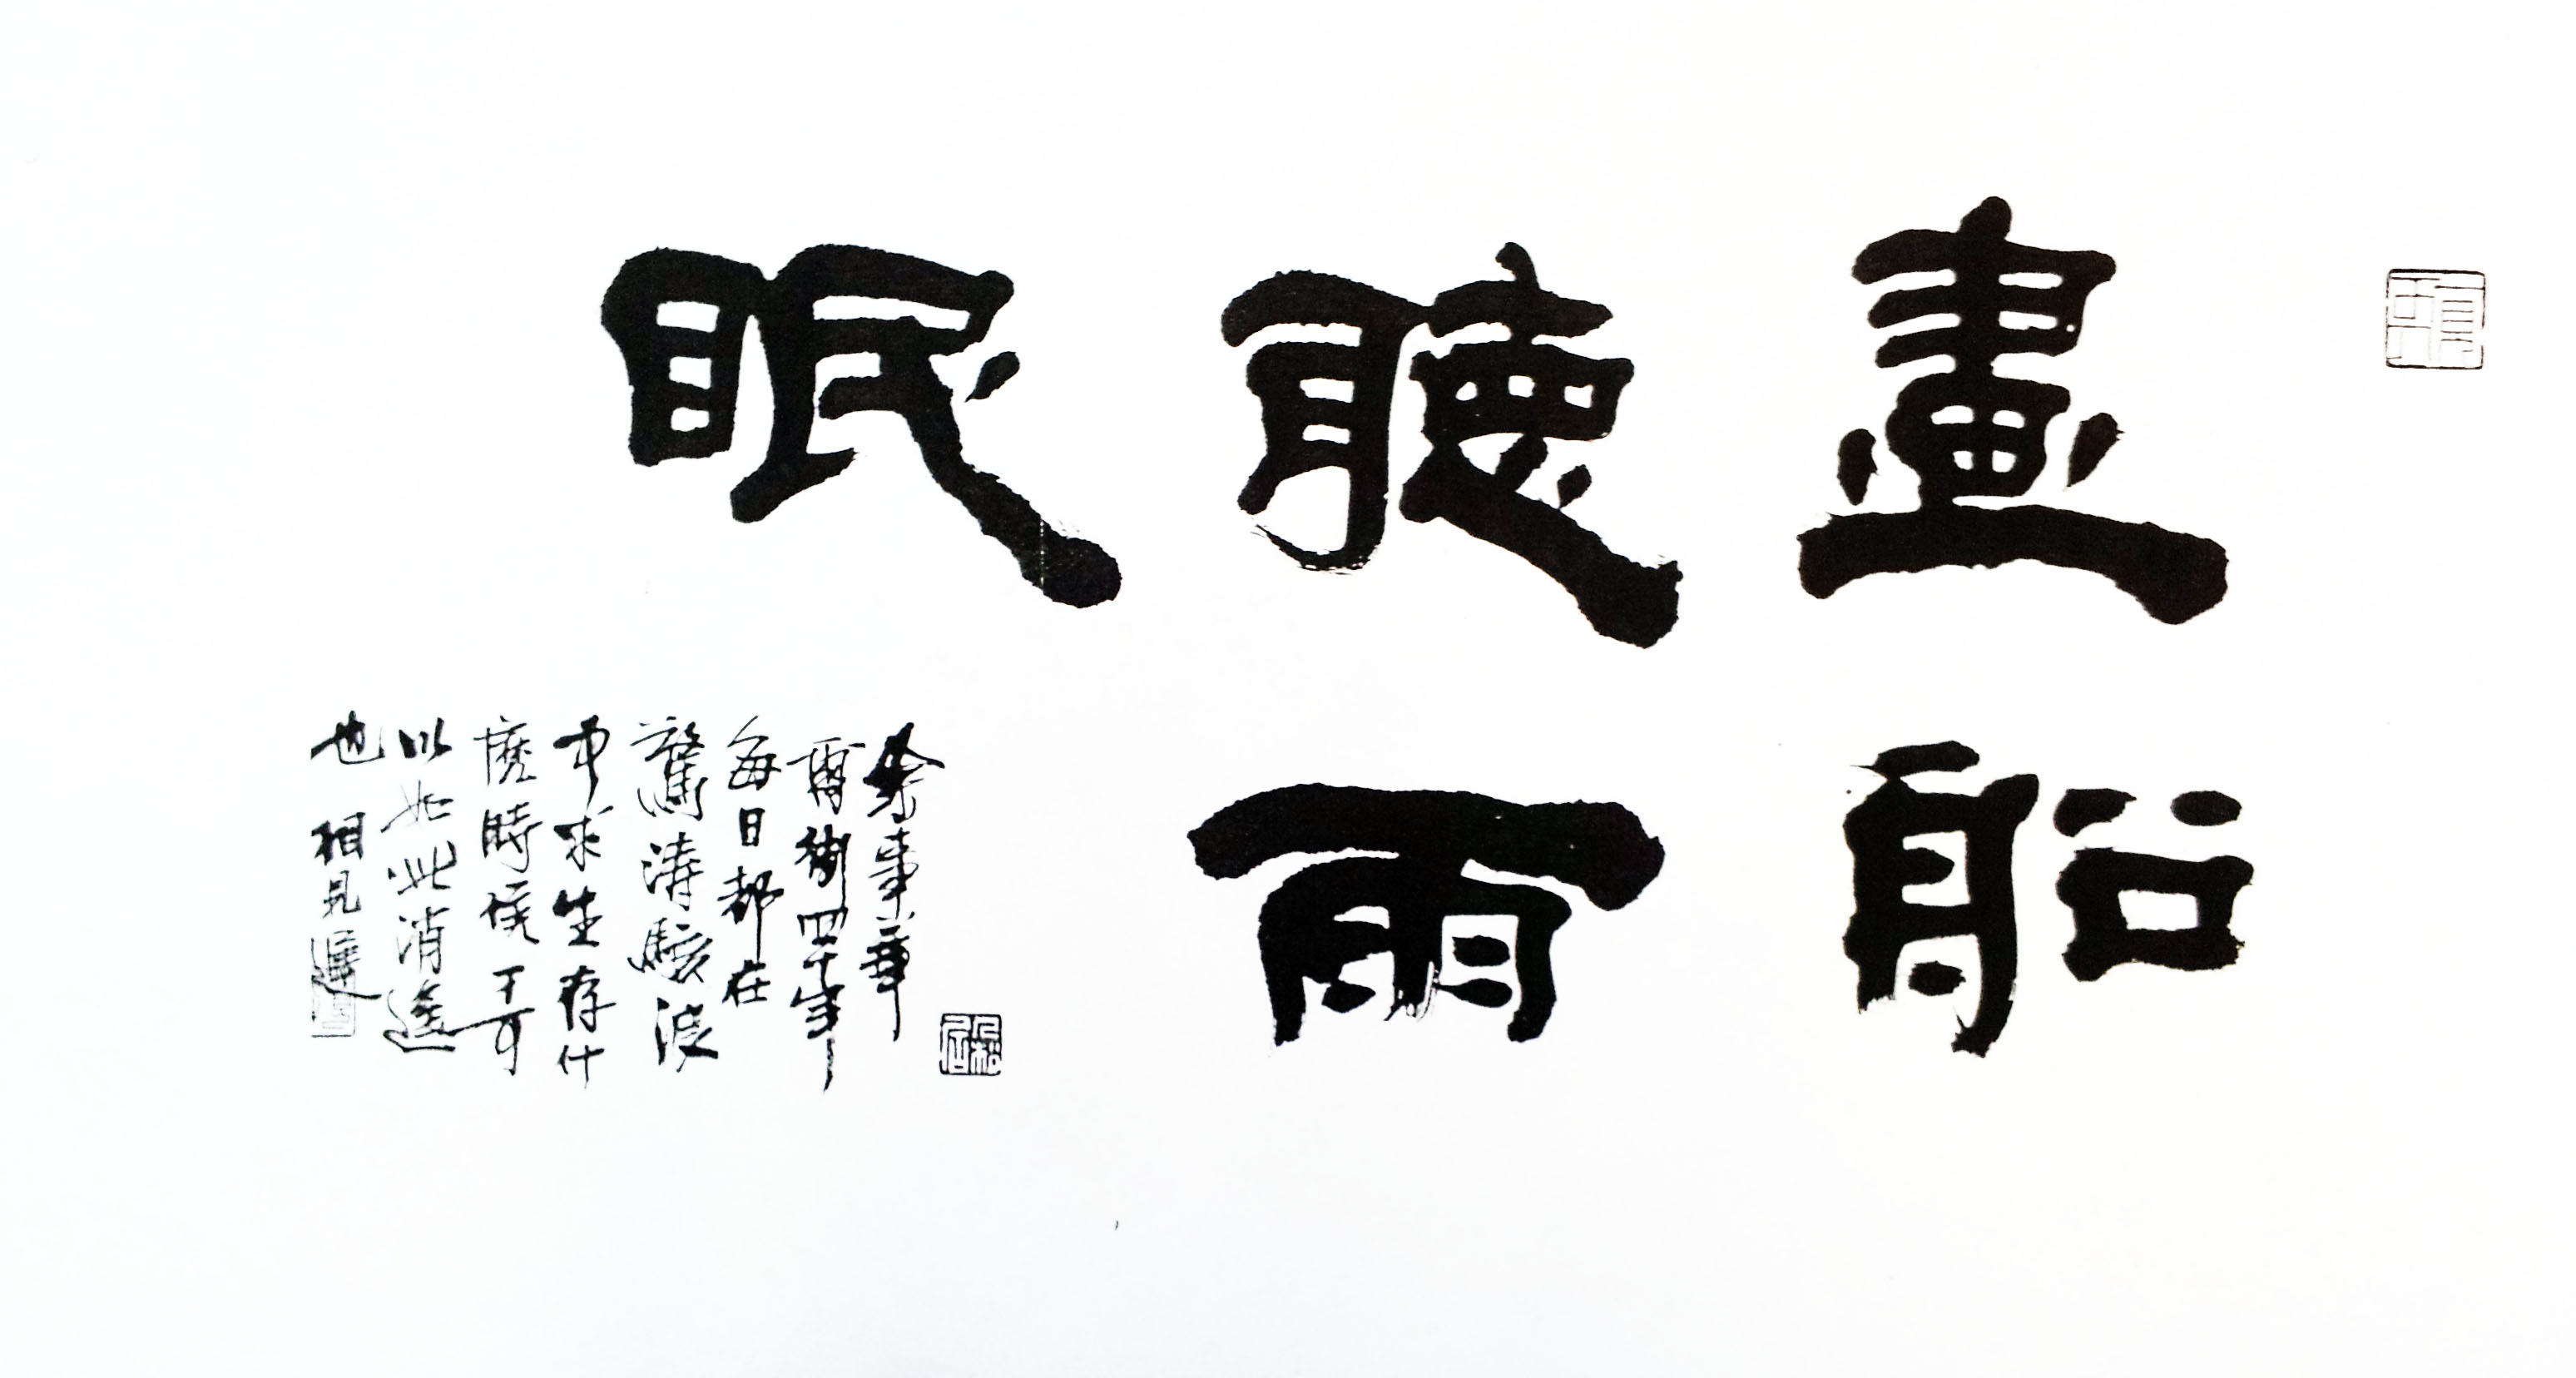 畫船
聽雨
眠
余事華
爾街四十年
每日都在
驚濤駭波
中求生存什
麼時候可
以如此消遥
也 相見遲